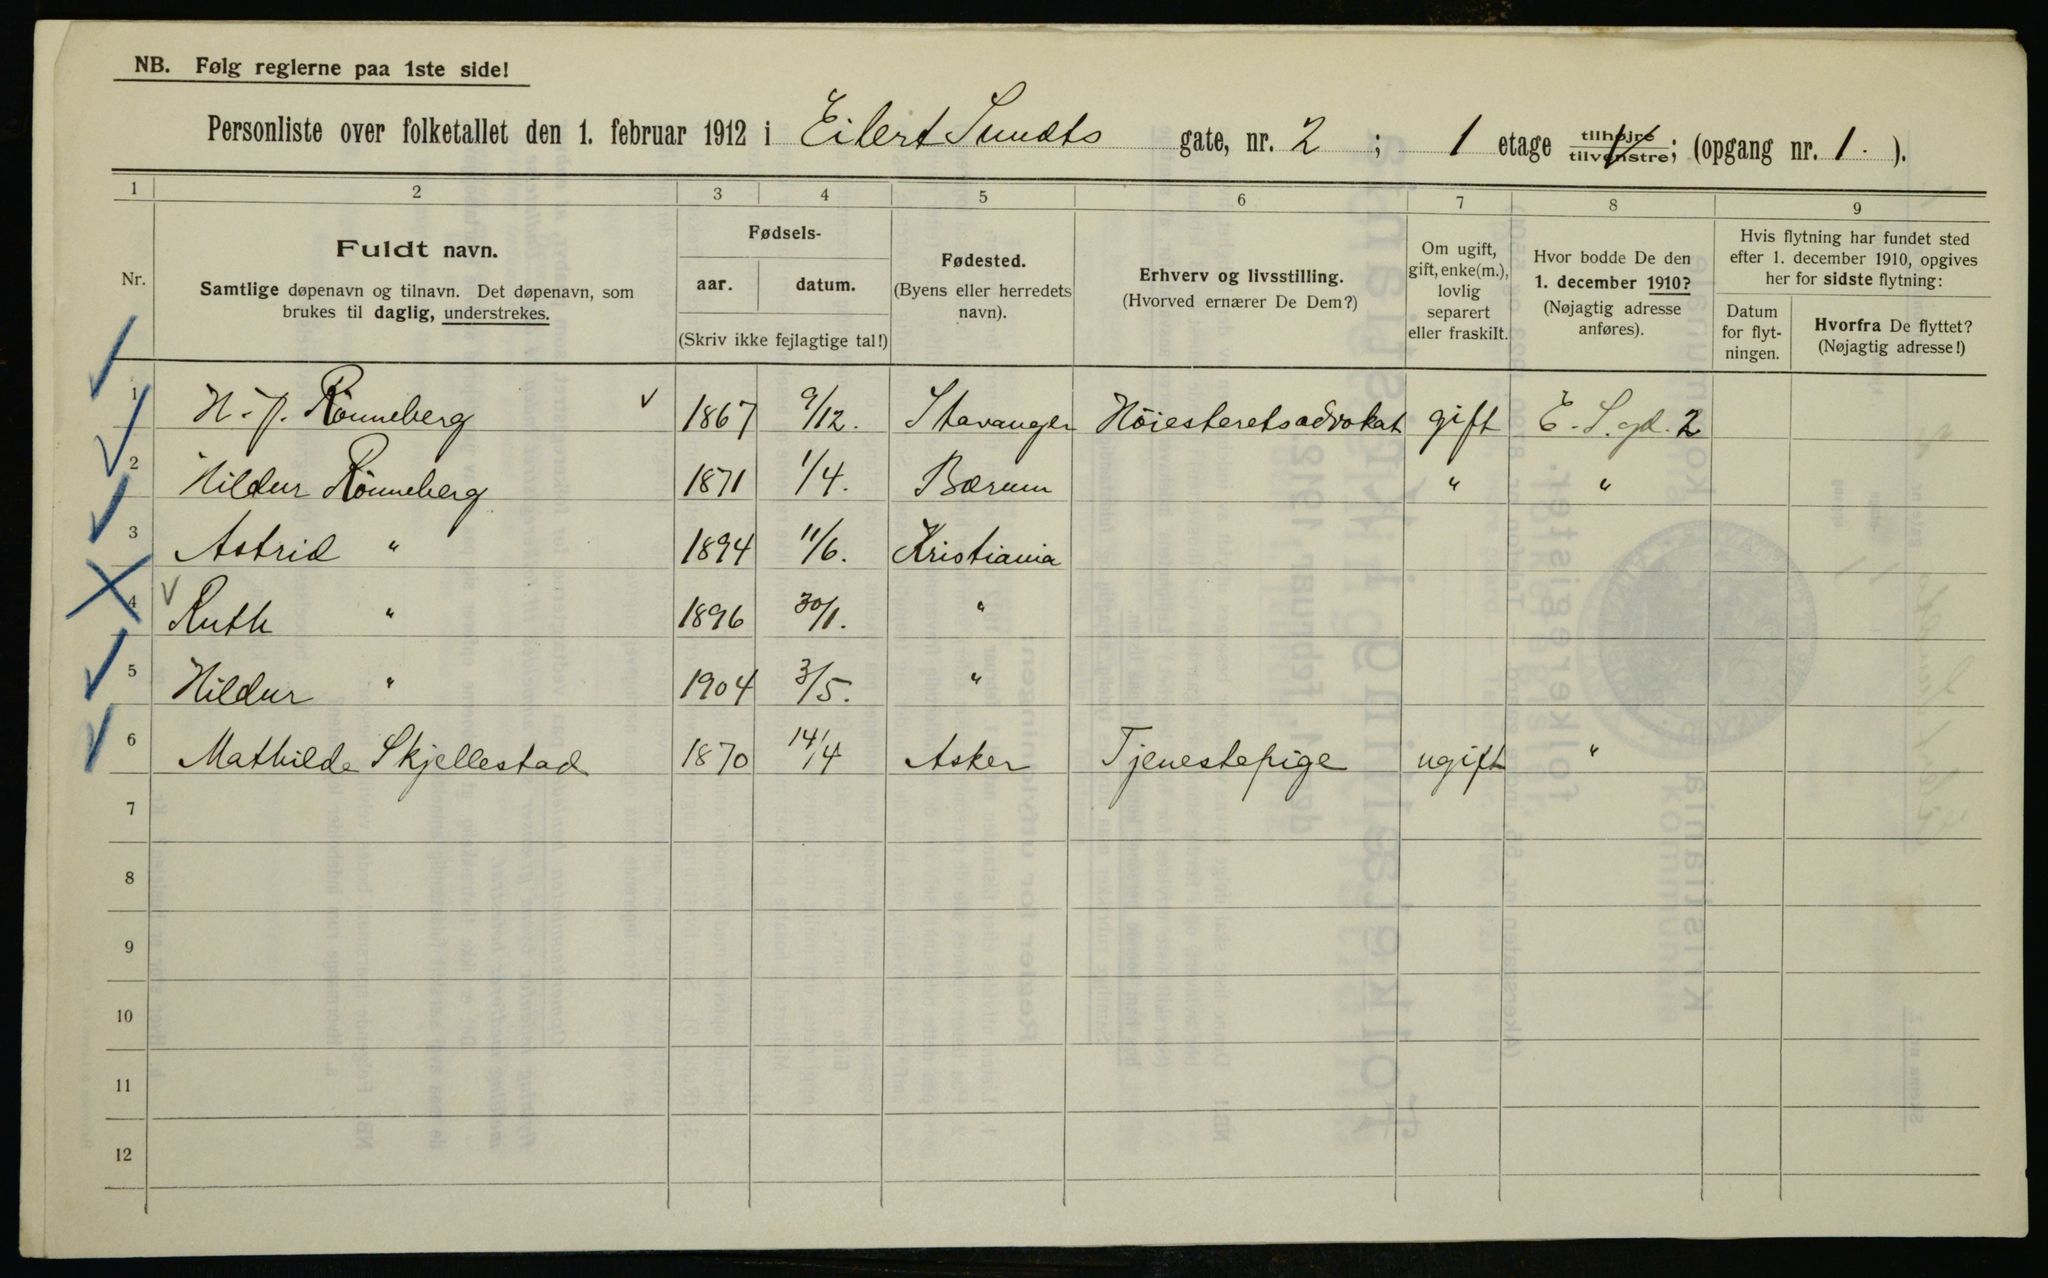 NB. Følg reglerne paa 1ste side!
Personliste over folketallet den 1. februar 1912 i Eilert Sundts gate, nr. 2 ; 1 etage tilhøjre/tilvenstre; (opgang nr. 1. ).
1 2 3 4 5 6 7 8 9
Nr.
Fuldt navn.
Samtlige døpenavn og tilnavn. Det døpenavn, som
brukes til daglig, understrekes.
Fødsels-
aar. datum.
(Skriv ikke fejlagtige tal!)
Fødested.
(Byens eller herredets
navn).
Erhverv og livsstilling.
(Hvorved ernærer De Dem?)
Om ugift,
gift, enke(m.),
lovlig
separert
eller fraskilt.
Hvor bodde De den
1. december 1910?
(Nøjagtig adresse
anføres).
Hvis flytning har fundet sted
efter 1. december 1910, opgives
her for sidste flytning:
Datum
for flyt-
ningen.
Hvorfra De flyttet?
(Nøjagtig adresse!)
1 H. P. Rønneberg 1867 9/12. Stavanger Høiesteretsadvokat gift E. S. gd. 2
2 Hildur Rønneberg 1871 1/4. Bærum " "
3 Astrid " 1894 11/6. Kristiania
4 Ruth " 1896 30/1. "
5 Hildur " 1904 3/5. "
6 Mathilde Skjellestad 1870 14/4 Asker Tjenestepige ugift "
7
8
9
10
11
12